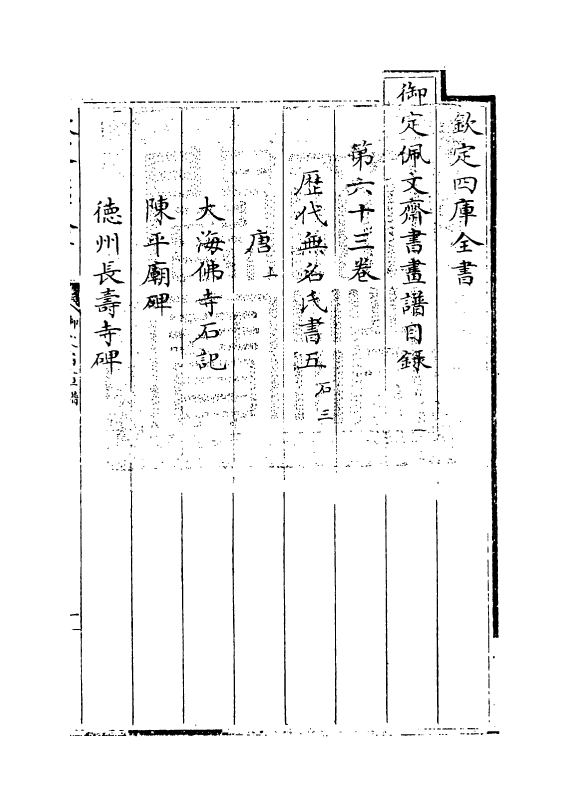 欽定四庫全書
御定佩文齋書畫譜目録
第六十三卷
歴代無名氏書五石三
唐上
大海佛寺石記
陳平廟碑
徳州長壽寺碑